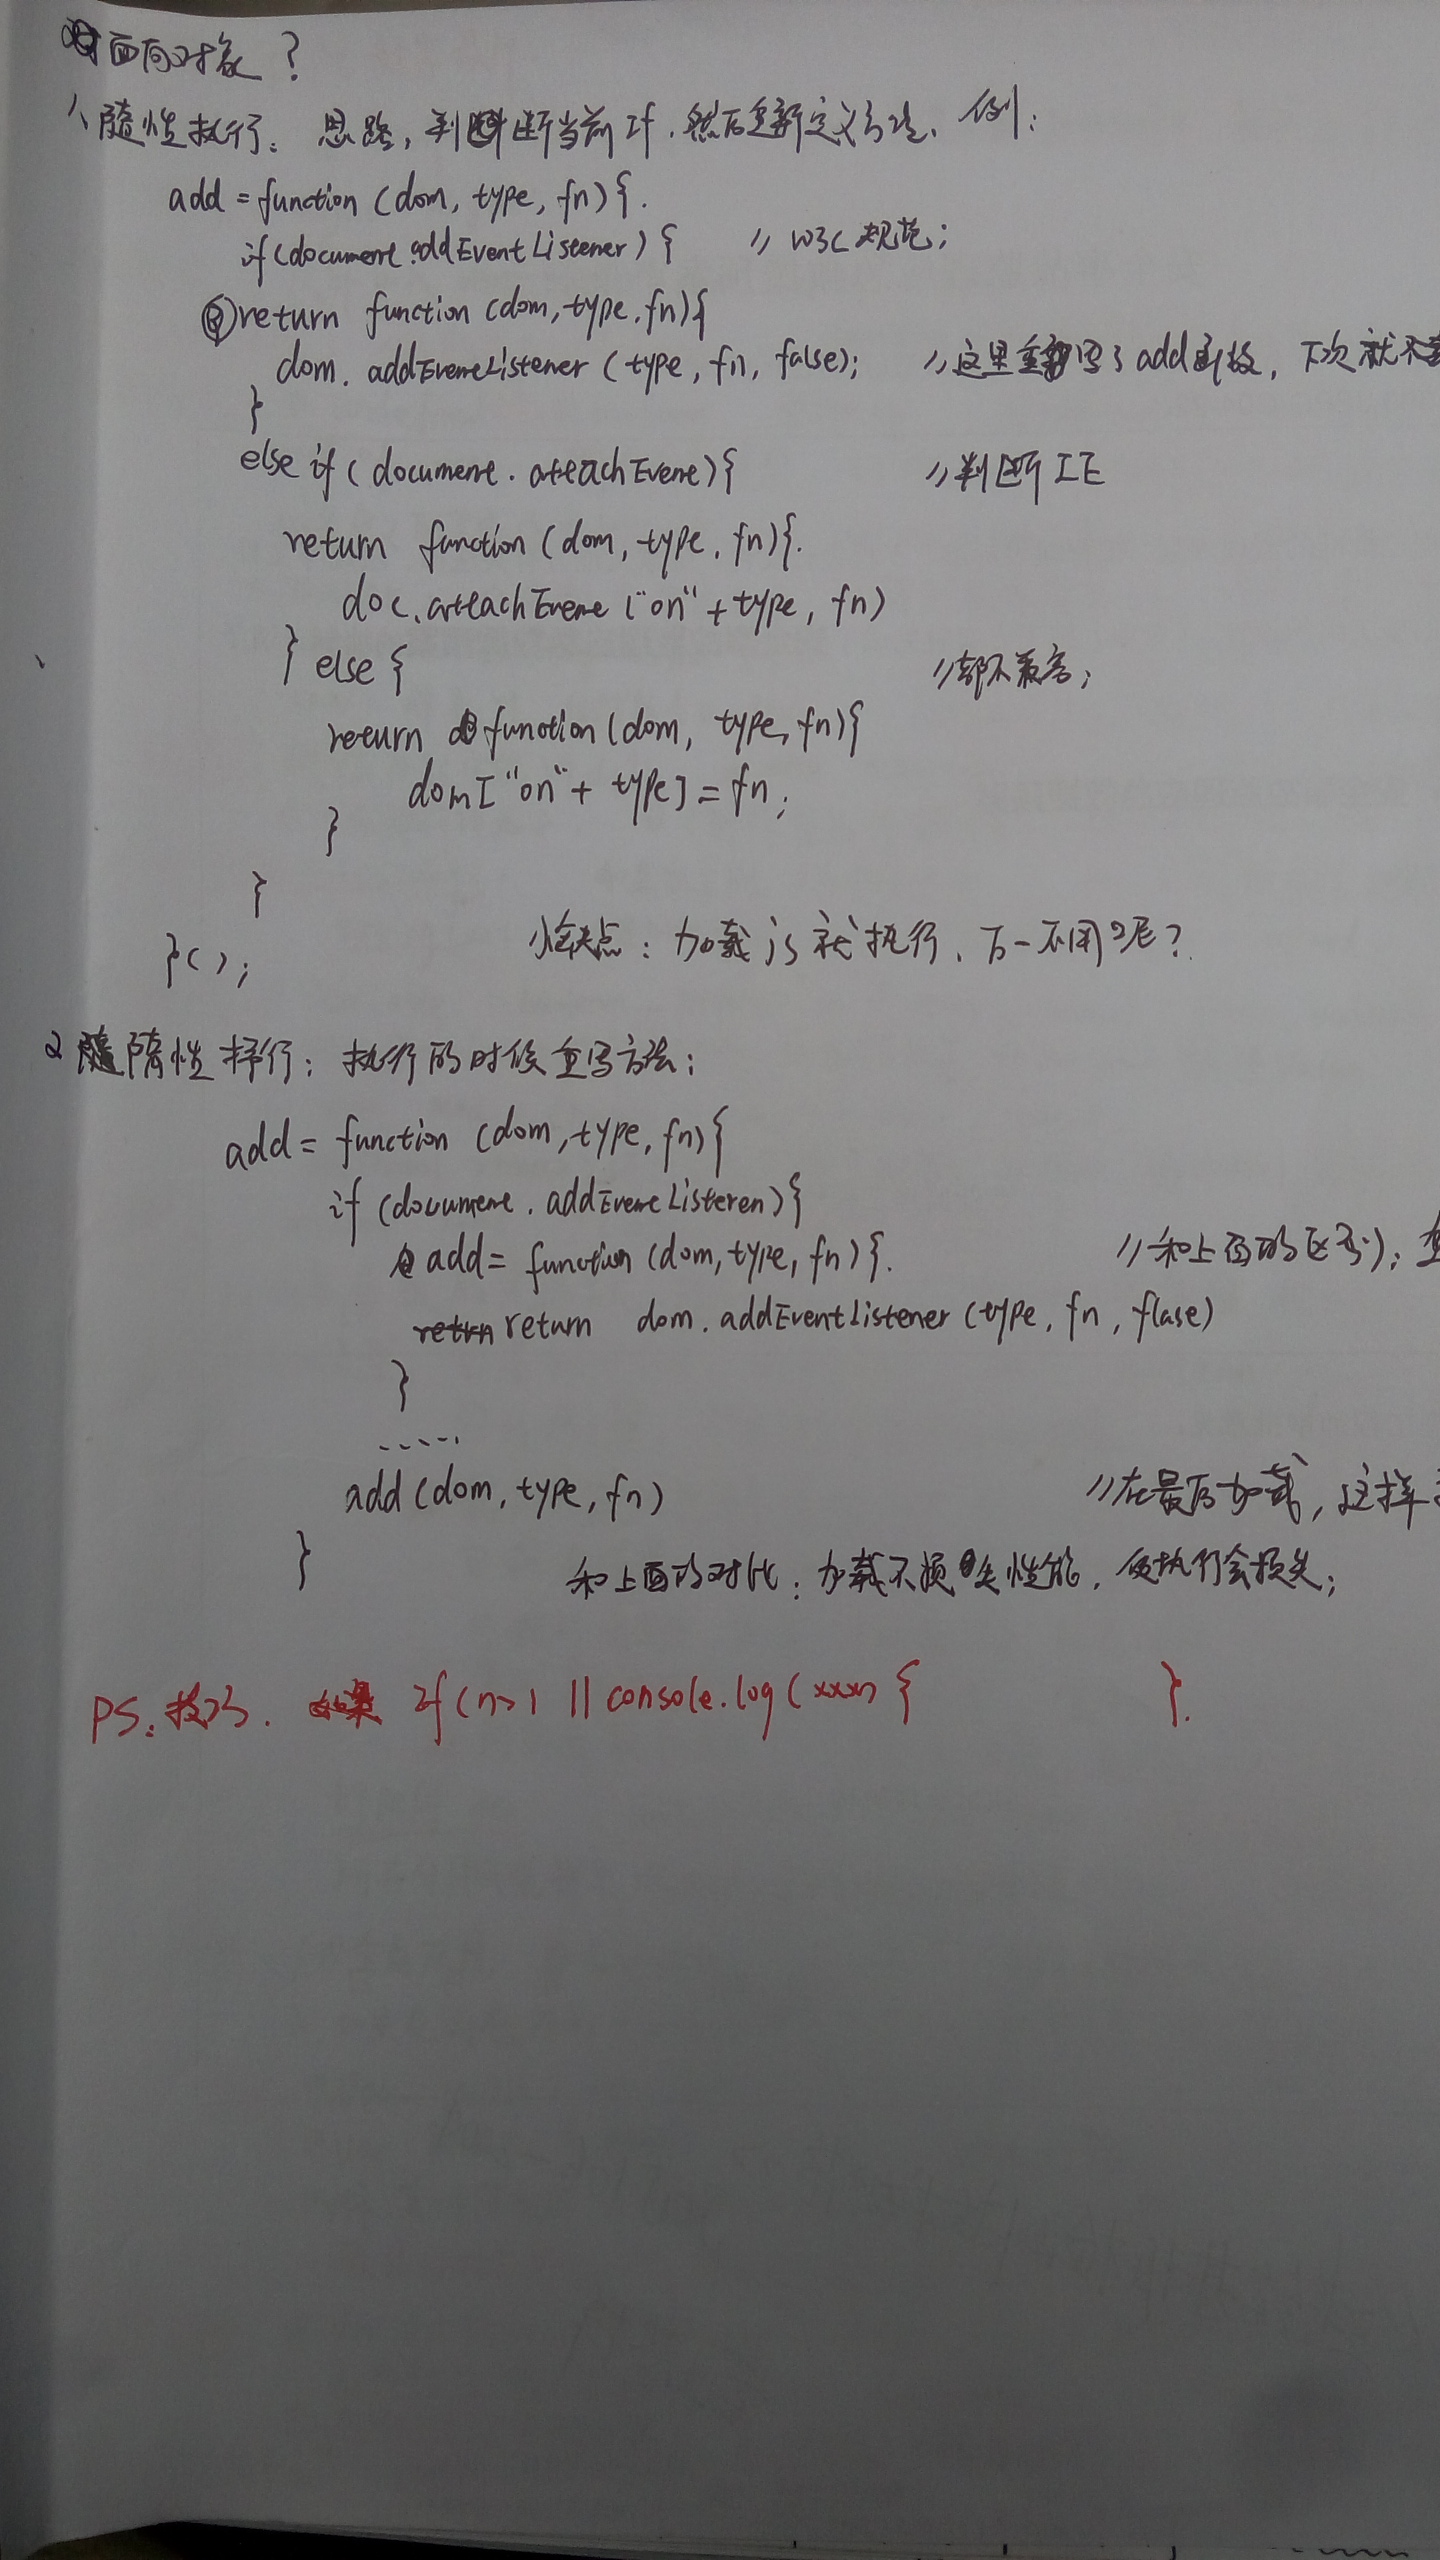 面向对象?
1、随性执行。思路,判断当前if.然后重新定义方法、例:
add = function (dom, type, fn){.
if(document.addEventListener) { // W3C规范;
return function (dom, type, fn){
dom. addEventListener (type, fn, false); //这里重写了add函数,下次就不
}
else if ( document. attachEvent){ //判断IE
return function (dom, type, fn){.
doc. attachEvent ("on" + type, fn)
} else { //都不兼容;
return function (dom, type, fn){
dom["on" + type] = fn;
}
}
}(); 缺点:加载js就执行、万一不用呢?
2 隋性执行:执行的时候重写方法;
add = function (dom, type, fn){
if (document. addEventListeren){
add = function (dom, type, fn){. //和上面的区别);
return dom. addEventListener (type, fn, flase)
}
.....
add (dom, type, fn) //在最后加载,这样
} 和上面的对比:加载不损失性能,但执行会损失;
PS:技巧. if (n>1 || console.log(xxx) { }.